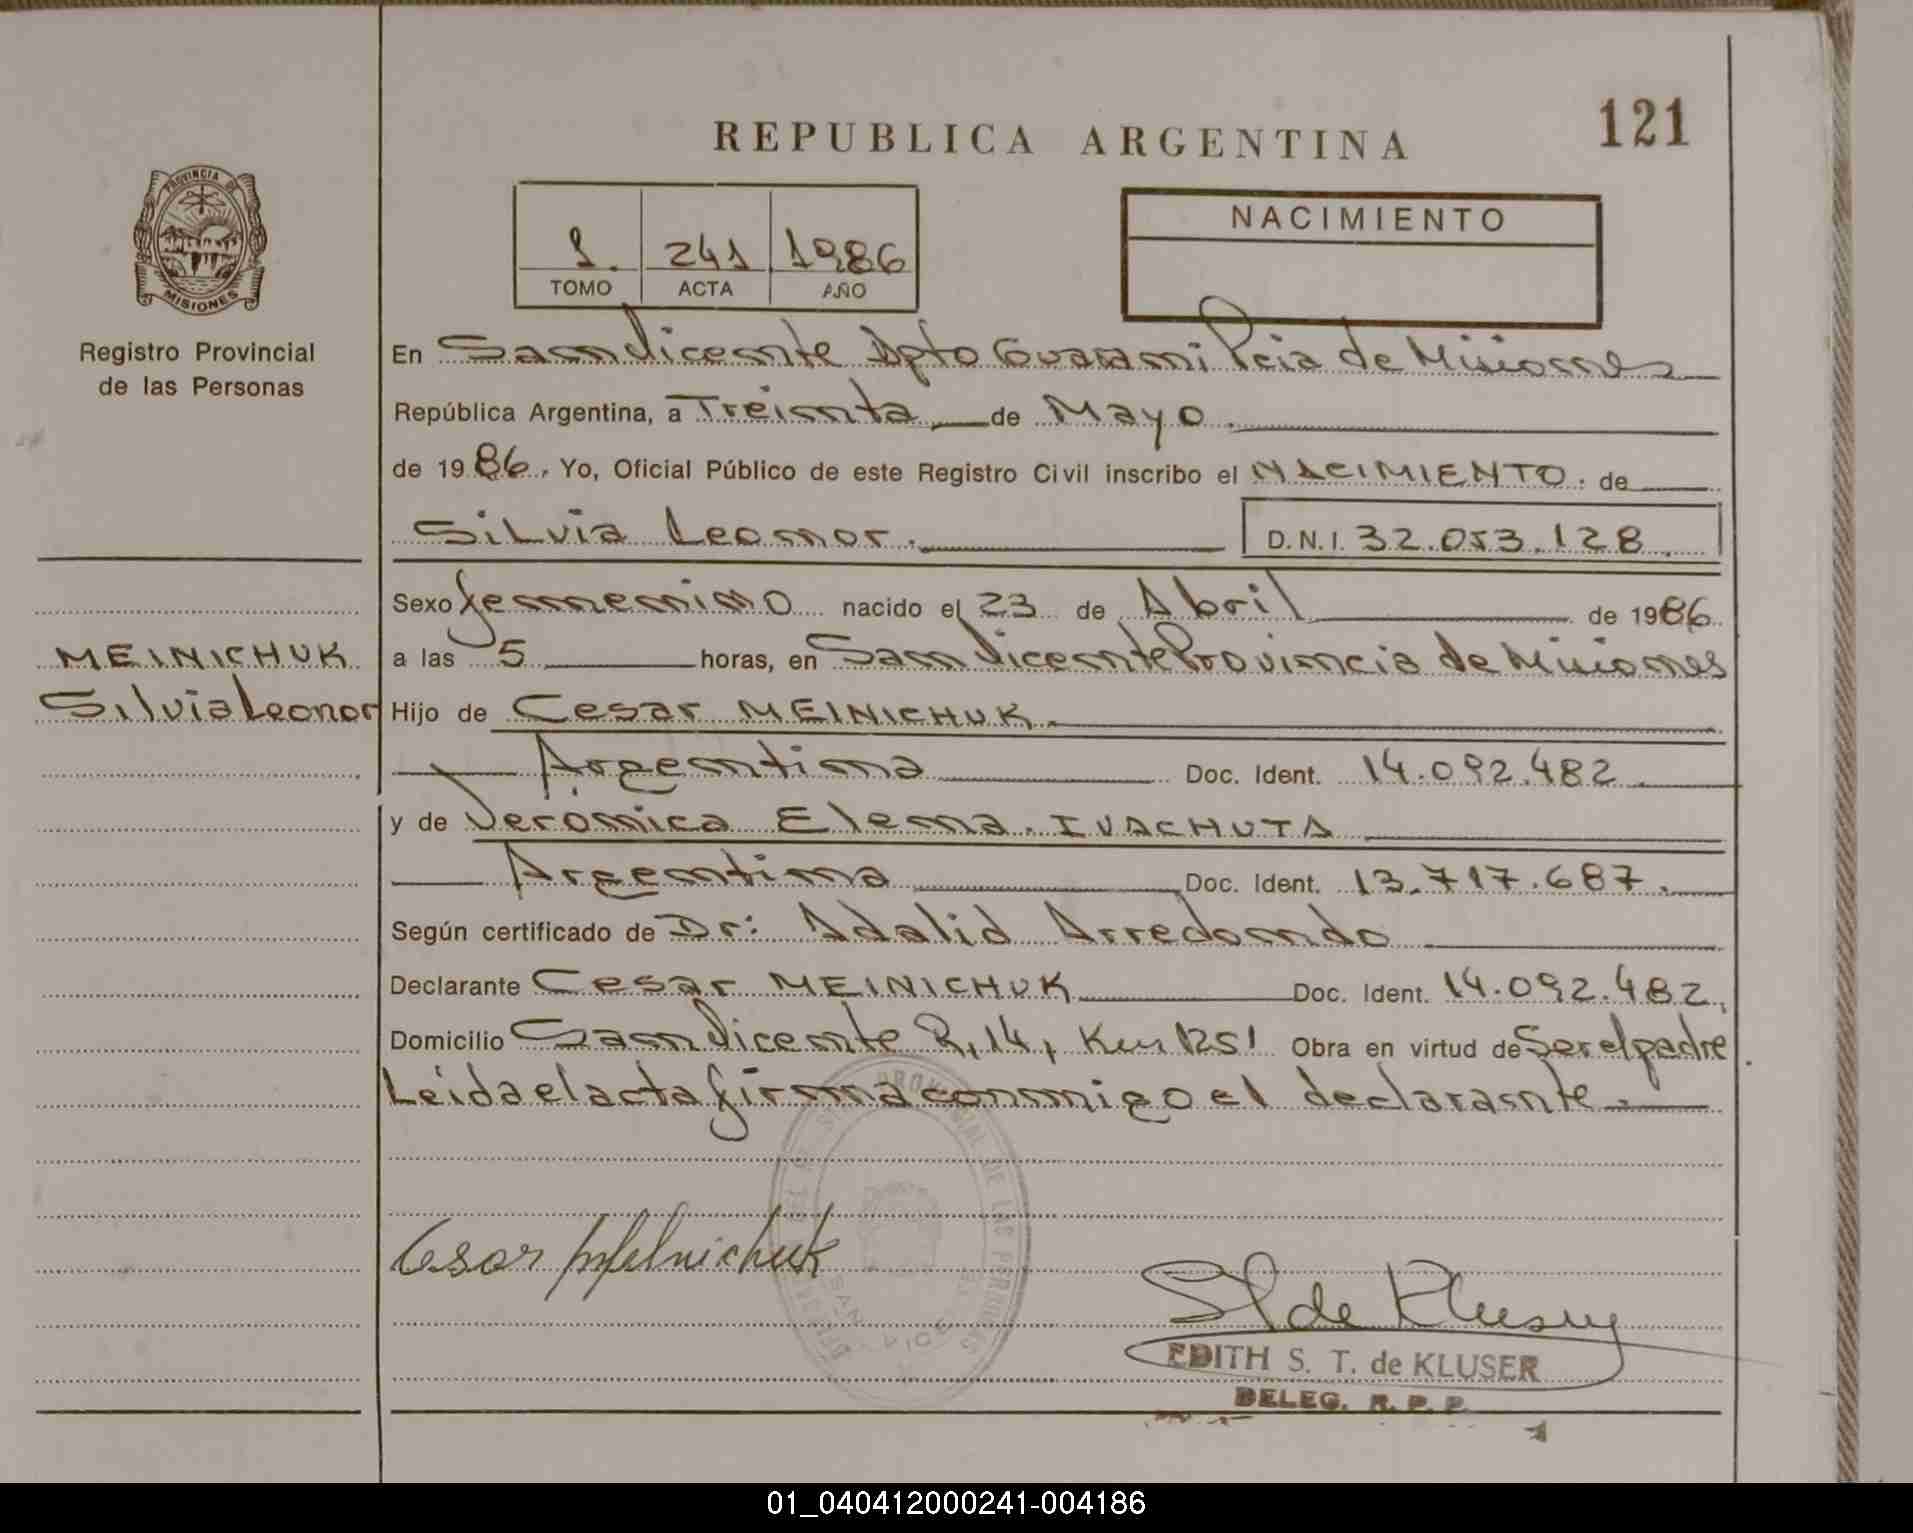 121
REPUBLICA ARGENTINA
PROVINCIA DE
MISIONES
Registro Provincial
de las Personas
1. 241 1986
TOMO ACTA AÑO
NACIMIENTO
En San Vicente Dpto Guarani Pcia de Misiones
República Argentina, a Treinta de Mayo.
de 1986. Yo, Oficial Público de este Registro Civil inscribo el NACIMIENTO. de
Silvia Leonor. D.N.I. 32.053.128.
Sexo femenino nacido el 23 de Abril de 1986.
MEINICHUK
Silvia Leonor
a las 5 horas, en San Vicente Provincia de Misiones
Hijo de Cesar MEINICHUK.
Argentina Doc. Ident. 14.092.482.
y de Verónica Elena. IVACHUTA
Argentina Doc. Ident. 13.717.687.
Según certificado de Dr: Adalid Arredondo
Declarante Cesar MEINICHUK Doc. Ident. 14.092.482.
Domicilio San Vicente R, 14, Km 1251 Obra en virtud de Ser el padre.
Leida el acta firma conmigo el declarante.
PROVINCIAL DE LAS PERSONAS
SAN VICE
Cesar Melnichuk
S de Kluser
EDITH S. T. de KLUSER
DELEG. R. P. P.
01_040412000241-004186